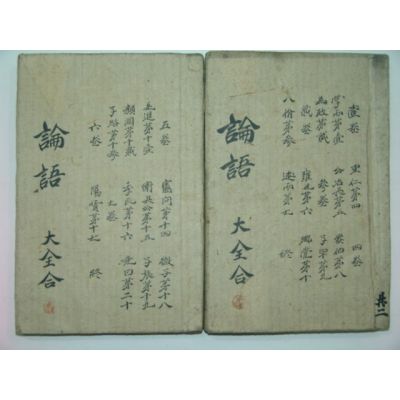 共二
壹卷 里仁第四 四卷
學而第壹 公冶長第五 泰伯第八
為政第貳 參卷 子罕第九
貳卷 雍也第六 鄕黨第十
八佾第參 述而第七 終
論語 大全合
五卷 憲問第十四 微子第十八
先進第十壹 衛灵公第十五 子張第十九
顔淵第十貳 季氏第十六 堯曰第二十
子路第十參 七卷
六卷 陽貨第十七 終
論語 大全合